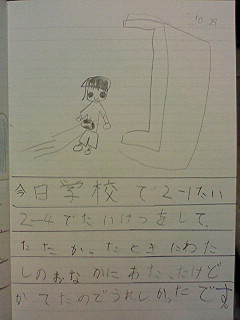 10 29
今日学校で2-1たい
2-4でたいけつをして、
たたかったときにわた
しのおなかにあたったけど
かてたのでうれしかったです。